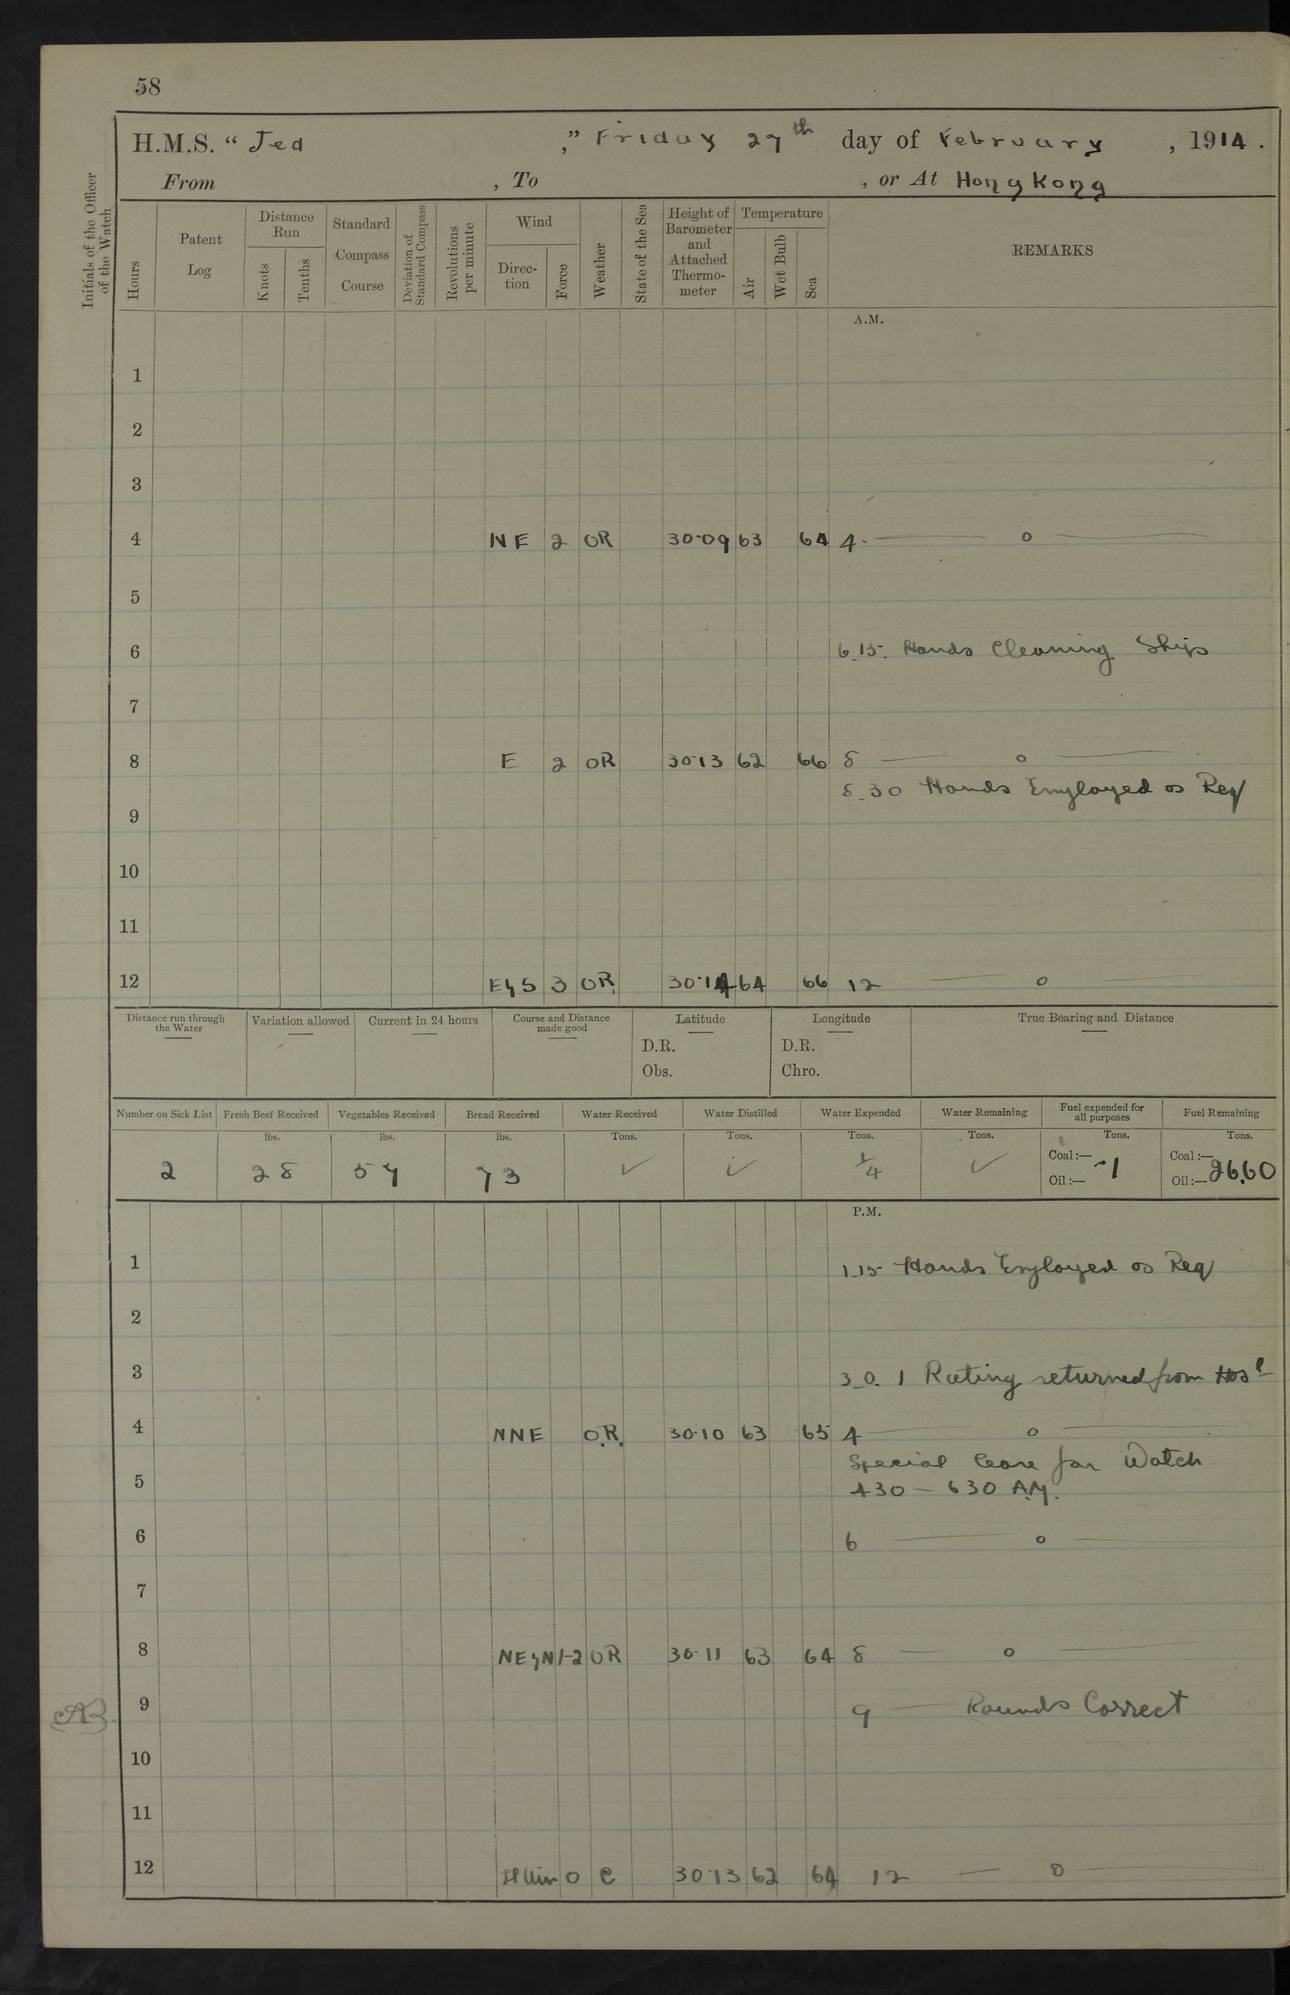 58
H.M.S. “ Jed ,” Friday 27th day of February , 1914 .
From , To , or At Hong Kong
Initials of the Officer of the Watch
Hours
Patent Log
Distance Run
Knots
Tenths
Standard Compass Course
Deviation of Standard Compass
Revolutions per minute
Wind
Direc- tion
Force
Weather
State of the Sea
Height of Barometer and Attached Thermo- meter
Temperature
Air
Wet Bulb
Sea
REMARKS
A.M.
1
2
3
4 NE 2 OR 30·09 63 64 4. — o —
5
6 6.15. Hands Cleaning Ship
7
8 E 2 OR 30·13 62 66 8 — o —
8.30 Hands Employed as Req
9
10
11
12 EyS 3 OR 30·14 64 66 12 — o —
Distance run through the Water
Variation allowed
Current in 24 hours
Course and Distance made good
Latitude
D.R.
Obs.
Longitude
D.R.
Chro.
True Bearing and Distance
Number on Sick List Fresh Beef Received Vegetables Received Bread Received Water Received Water Distilled Water Expended Water Remaining Fuel expended for all purposes Fuel Remaining
lbs. lbs. lbs. Tons. Tons. Tons. Tons. Tons. Tons.
2 28 57 73 ✓ ✓ 1/4 ✓ Coal :— Oil :— ·1 Coal :— Oil :— 26.60
P.M.
1 1.15 Hands Employed as Req
2
3 3.0. 1 Rating returned from Hosl
4 NNE O.R. 30·10 63 65 4 — o —
Special leave for Watch
5 430 — 630 A.M.
6 6 — o —
7
8 NEyN 1-2 OR 30·11 63 64 8 — o —
9 9 — Rounds Correct
10
11
12 0 C 30·13 62 64 12 — o —